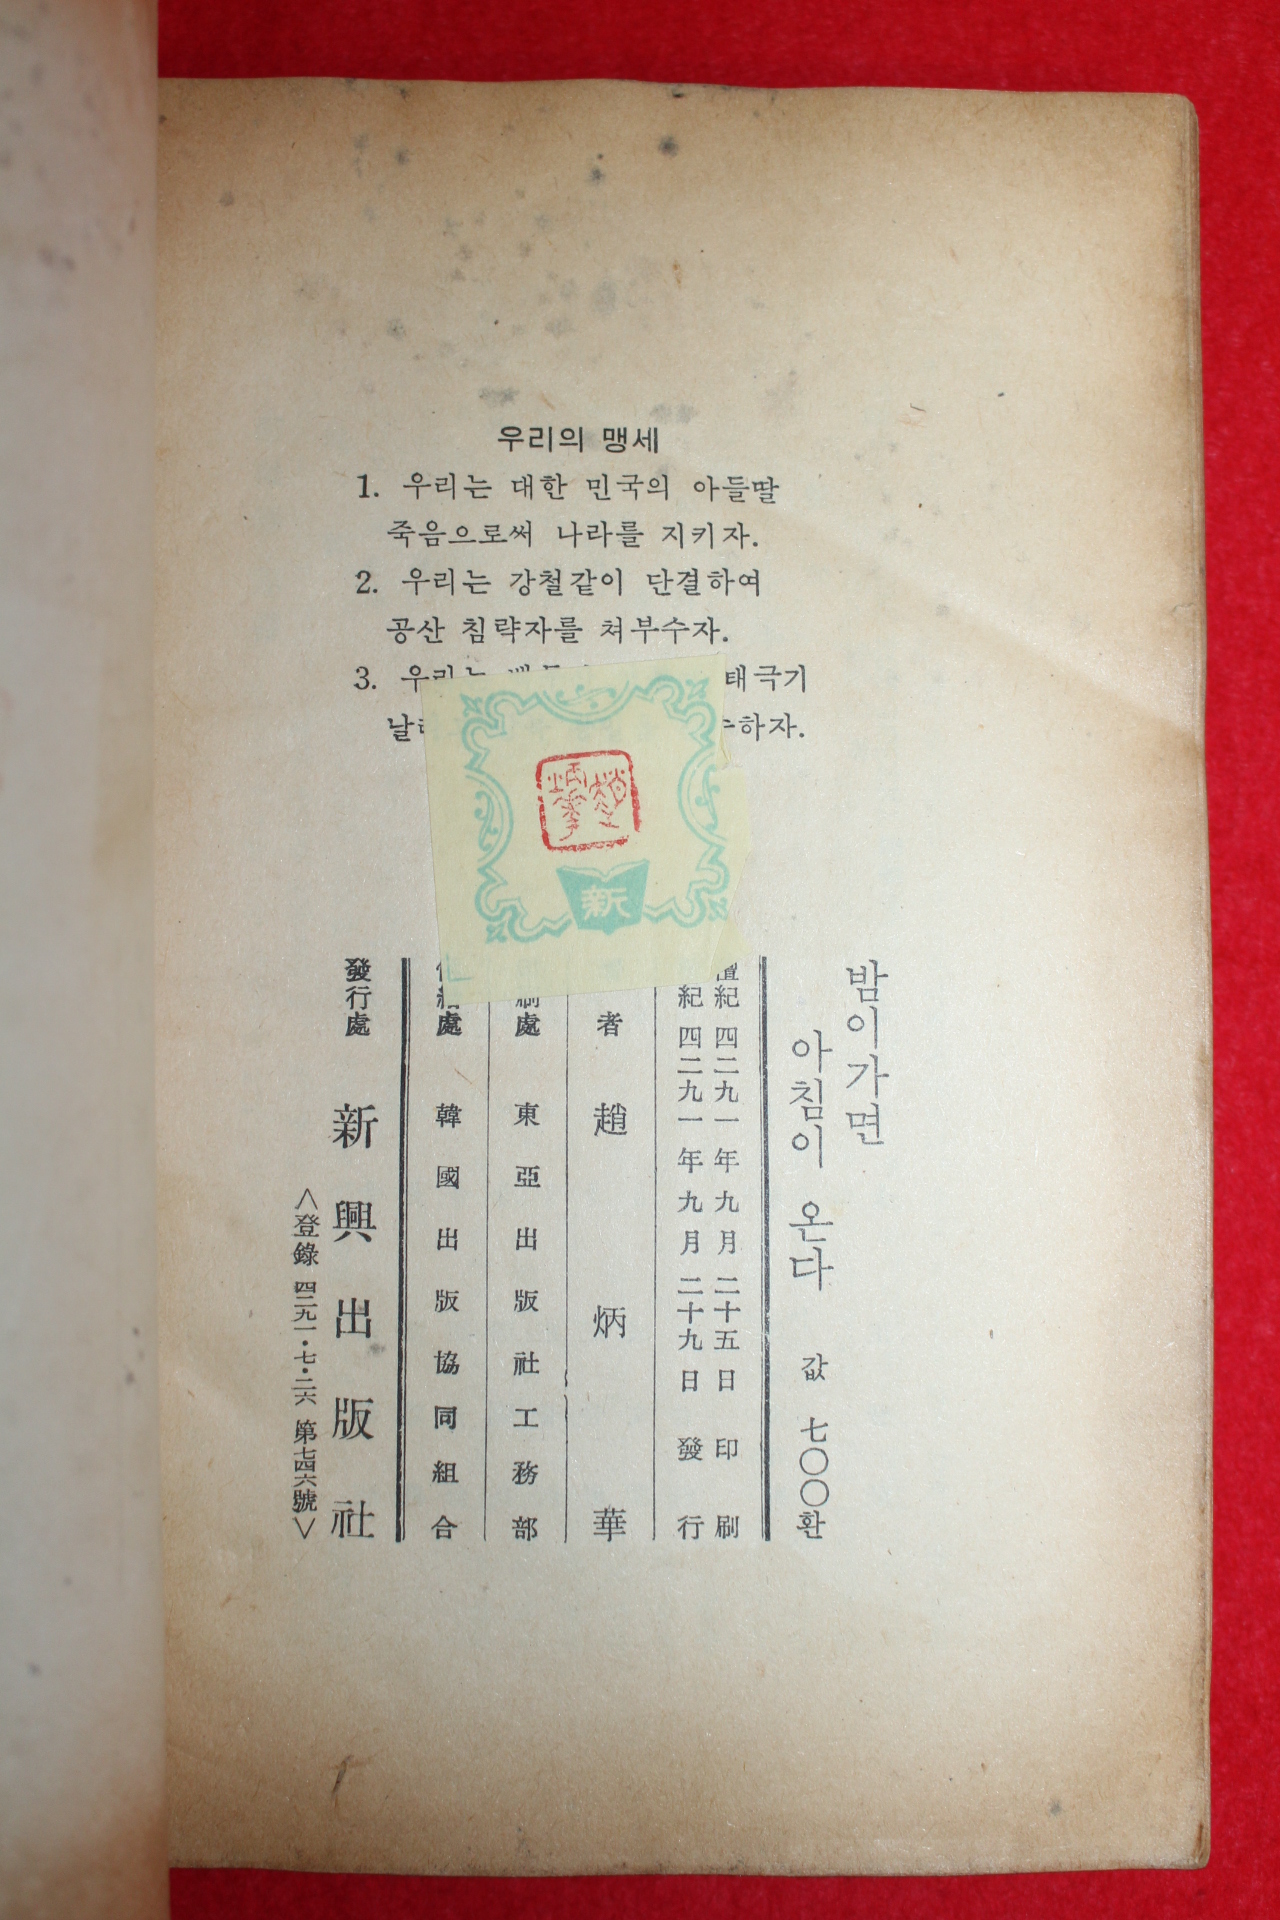 우리의 맹세
1. 우리는 대한 민국의 아들딸
죽음으로써 나라를 지키자.
2. 우리는 강철같이 단결하여
공산 침략자를 쳐부수자.
3. 우리는 태극기
날 하자.
新
밤이가면
아침이 온다 값 七〇〇환
檀紀 四二九一年 九月 二十五日 印刷
紀 四二九一年 九月 二十九日 發行
者 趙炳華
刷處 東亞出版社工務部
處 韓國出版協同組合
發行處 新興出版社
<登錄 四二九一·七·二六 第七四六號>